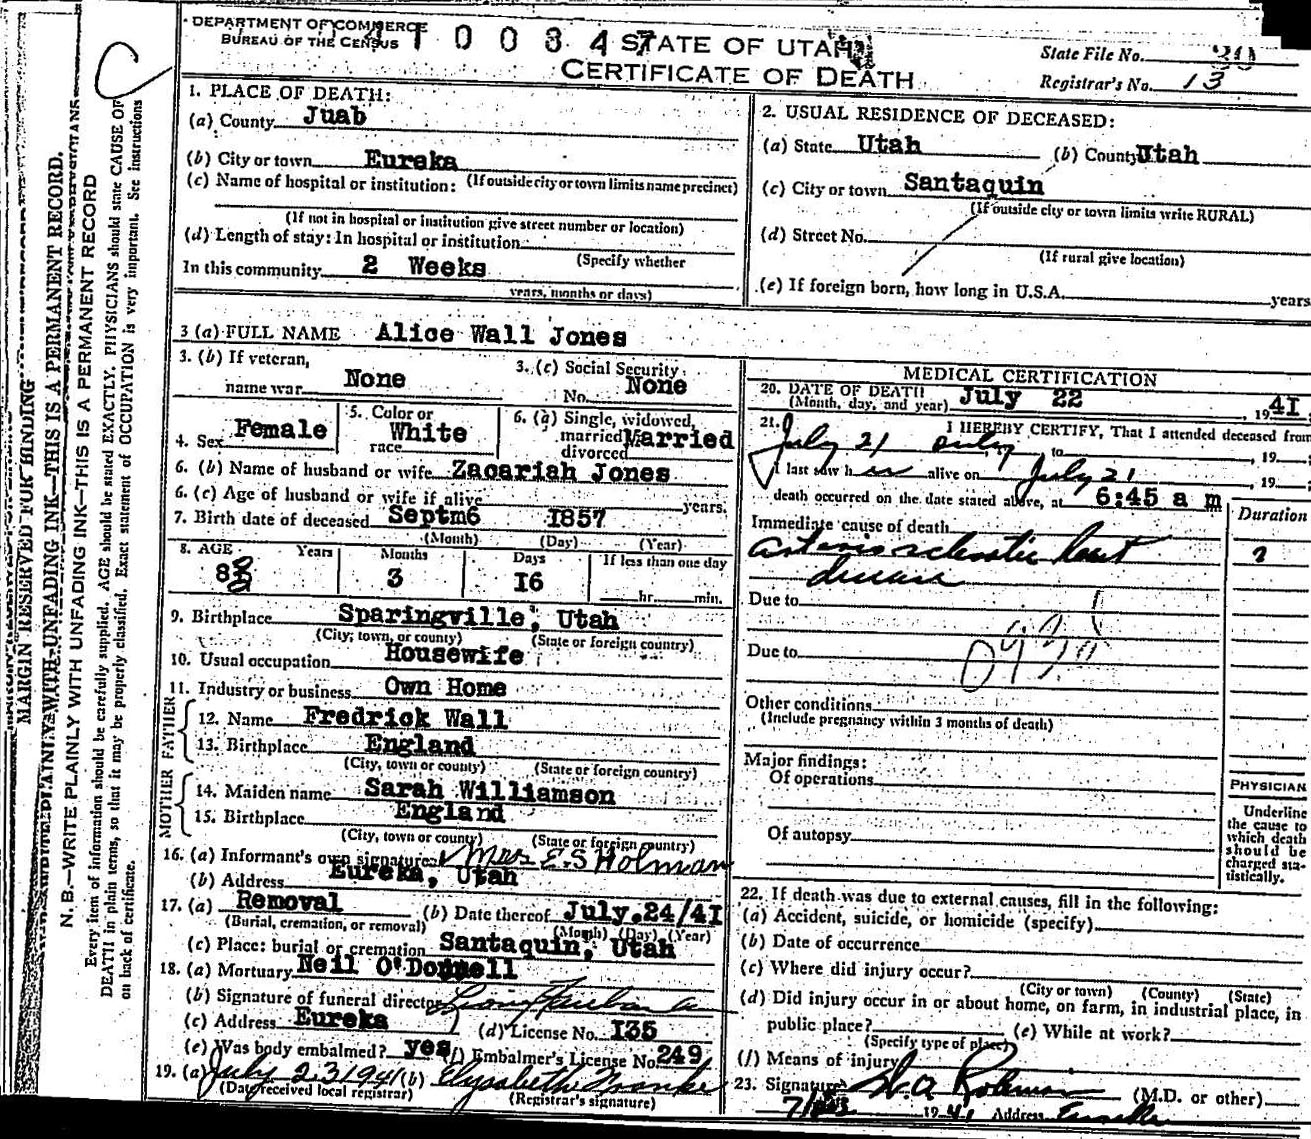 DEPARTMENT OF COMMERCE
BUREAU OF THE CENSUS
STATE OF UTAH
CERTIFICATE OF DEATH
State File No.
Registrar's No. 13
MARGIN RESERVED FOR BINDING
WRITE PLAINLY WITH UNFADING INK—THIS IS A PERMANENT RECORD.
N. B.—WRITE PLAINLY WITH UNFADING INK—THIS IS A PERMANENT RECORD
Every item of information should be carefully supplied. AGE should be stated EXACTLY. PHYSICIANS should state CAUSE OF
DEATH in plain terms, so that it may be properly classified. Exact statement of OCCUPATION is very important. See instructions
on back of certificate.
1. PLACE OF DEATH:
(a) County Juab
(b) City or town Eureka
(If outside city or town limits name precinct)
(c) Name of hospital or institution:
(If not in hospital or institution give street number or location)
(d) Length of stay: In hospital or institution
(Specify whether
In this community 2 Weeks
years, months or days)
2. USUAL RESIDENCE OF DECEASED:
(a) State Utah (b) County Utah
(c) City or town Santaquin
(If outside city or town limits write RURAL)
(d) Street No.
(If rural give location)
(e) If foreign born, how long in U.S.A. years
3 (a) FULL NAME Alice Wall Jones
3. (b) If veteran,
name war None
3. (c) Social Security
No. None
4. Sex Female
5. Color or
race White
6. (a) Single, widowed,
married Married
divorced
6. (b) Name of husband or wife Zacariah Jones
6. (c) Age of husband or wife if alive years.
7. Birth date of deceased Septm6 1857
(Month) (Day) (Year)
8. AGE Years Months Days If less than one day
3 16 hr. min.
9. Birthplace Sparingville, Utah
(City, town, or county) (State or foreign country)
10. Usual occupation Housewife
11. Industry or business Own Home
FATHER
12. Name Fredrick Wall
13. Birthplace England
(City, town or county) (State or foreign country)
MOTHER
14. Maiden name Sarah Williamson
15. Birthplace England
(City, town or county) (State or foreign country)
16. (a) Informant's own signature Mrs E.S Holman
(b) Address Eureka, Utah
17. (a) Removal (b) Date thereof July.24/41
(Burial, cremation, or removal) (Month) (Day) (Year)
(c) Place: burial or cremation Santaquin, Utah
18. (a) Mortuary Neil O'Donnell
(b) Signature of funeral director
(c) Address Eureka (d) License No. 135
(e) Was body embalmed? yes (f) Embalmer's License No. 249
19. (a) July 23 1941 (b) Elysabeth
(Date received local registrar) (Registrar's signature)
MEDICAL CERTIFICATION
20. DATE OF DEATH
(Month, day, and year) July 22, 1941
21. I HEREBY CERTIFY, That I attended deceased from
July 21 only to , 19
I last saw h er alive on July 21 , 19
death occurred on the date stated above, at 6:45 a m
Duration
Immediate cause of death
arteriosclerotic heart
disease
?
Due to
Due to
Other conditions
(Include pregnancy within 3 months of death)
Major findings:
Of operations
Of autopsy
PHYSICIAN
Underline
the cause to
which death
should be
charged sta-
tistically.
22. If death was due to external causes, fill in the following:
(a) Accident, suicide, or homicide (specify)
(b) Date of occurrence
(c) Where did injury occur?
(City or town) (County) (State)
(d) Did injury occur in or about home, on farm, in industrial place, in
public place? (e) While at work?
(Specify type of place)
(f) Means of injury
23. Signature (M.D. or other)
1941 Address Eureka